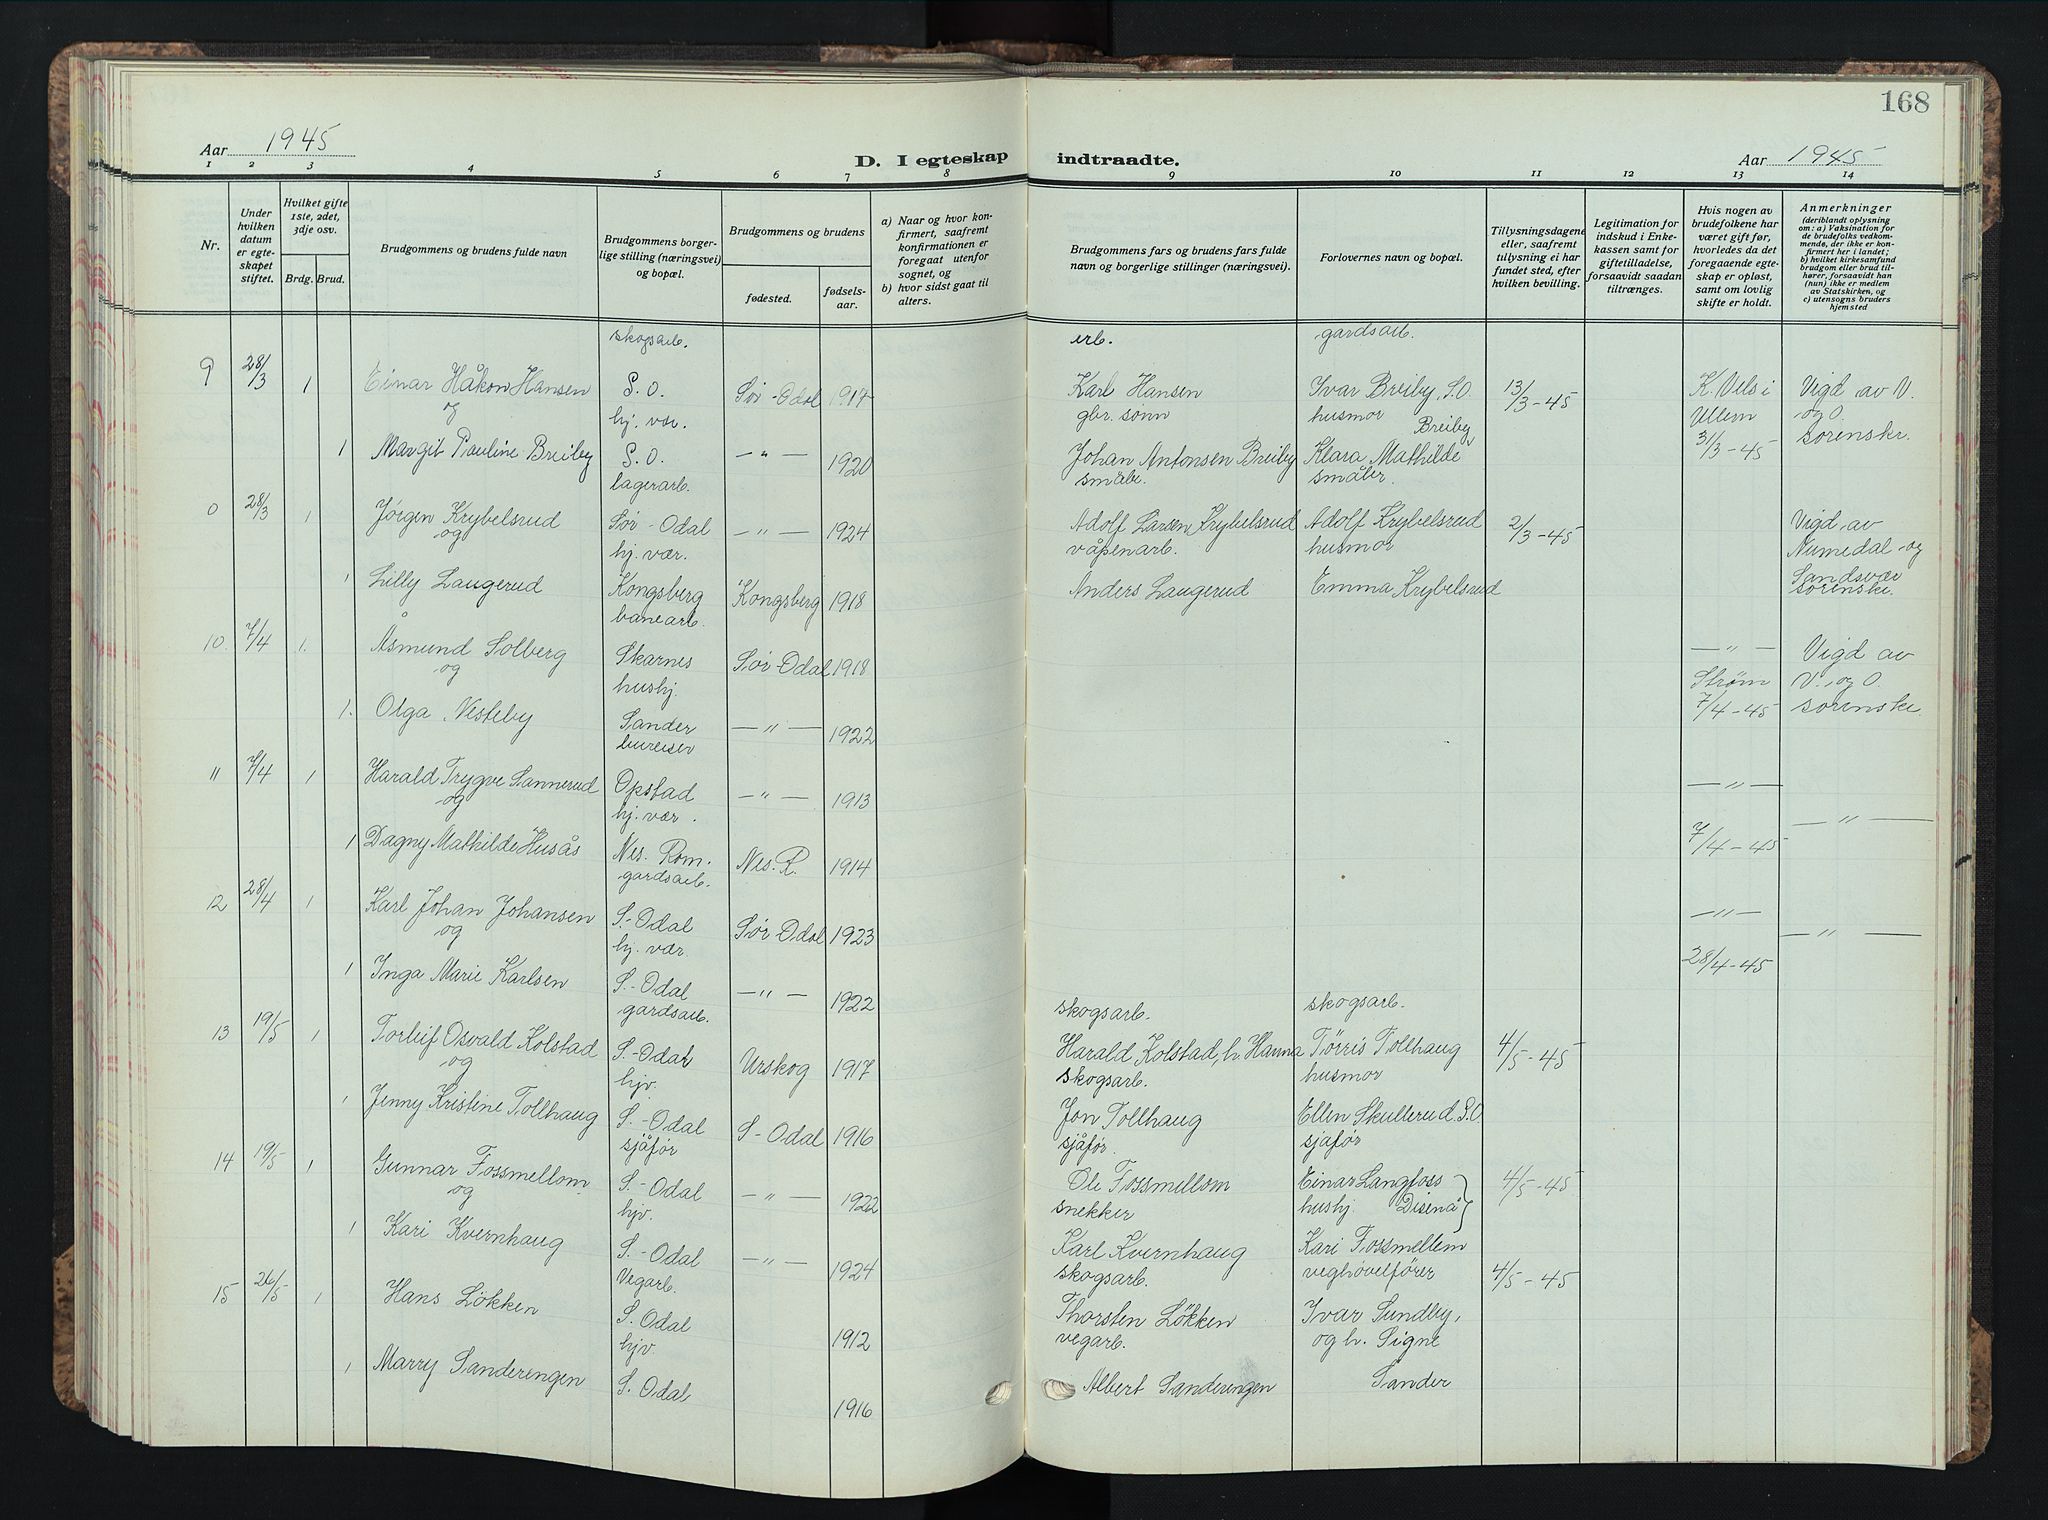 168
Aar 1945
D. I egteskap indtraadte.
Aar 1945
1 2 3 4 5 6 7 8 9 10 11 12 13 14
Nr.
Under hvilken datum er egteskapet stiftet.
Hvilket gifte 1ste, 2det, 3dje osv.
Brdg. Brud.
Brudgommens og brudens fulde navn
Brudgommens borgerlige stilling (næringsvei) og bopæl.
Brudgommens og brudens
fødested.
fødselsaar.
a) Naar og hvor konfirmert, saafremt konfirmationen er foregaat utenfor sognet, og
b) hvor sidst gaat til alters.
Brudgommens fars og brudens fars fulde navn og borgerlige stillinger (næringsvei).
Forlovernes navn og bopæl.
Tillysningsdagene eller, saafremt tillysning ei har fundet sted, efter hvilken bevilling.
Legitimation for indskud i Enkekassen samt for giftetilladelse, forsaavidt saadan tiltrænges.
Hvis nogen av brudefolkene har været gift før, hvorledes da det foregaaende egteskap er opløst, samt om lovlig skifte er holdt.
Anmerkninger
(deriblandt oplysning om: a) Vaksination for de brudefolks vedkommende, der ikke er konfirmert her i landet; b) hvilket kirkesamfund brudgom eller brud tilhører, forsaavidt han (hun) ikke er medlem av Statskirken, og c) utensogns bruders hjemsted
skogsarb. erb. gardsarb.
9 28/3 1 Einar Håkon Hansen S.O. Sør-Odal 1917 Karl Hansen Ivar Breiby, S.O. 13/3-45 K. Vels i Vigd av V.
og hj. vær. gbr. sønn husmor Breiby Ullern og O.
1 Margit Pauline Breiby S.O. —"— 1920 Johan Antonsen Breiby Klara Mathilde 31/3-45 sorenskr.
lagerarb. småbr. småbr.
0 28/3 1 Jørgen Krybelsrud Sør-Odal —"— 1924 Adolf Larsen Krybelsrud Adolf Krybelsrud 2/3-45 Vigd av
og hj. vær. våpenarb. husmor Numedal og
1 Lilly Laugerud Kongsberg Kongsberg 1918 Anders Laugerud Emma Krybelsrud Sandsvær
banearb. sorenskr.
10. 7/4 1. Åsmund Solberg Skarnes Sør Odal 1918 —"— Vigd av
og hushj. Strøm V. og O.
1. Olga Nesteby Sander —"— 1922 7/4-45 sorenskr.
bureiser
11 7/4 1 Harald Trygve Sannerud Opstad —"— 1913 —"—
og hj. vær.
1 Dagny Mathilde Husås Nes. Rom. Nes. R. 1914 7/4-45 —"—
gardsarb.
12 28/4 1 Karl Johan Johansen S.-Odal Sør Odal 1923 —"—
og hj. vær. —"—
1 Inga Marie Karlsen S.-Odal —"— 1922 28/4-45
gardsarb. skogsarb. skogsarb.
13 19/5 1 Torleif Osvald Kolstad S.-Odal Urskog 1917 Harald Kolstad, h. Hanna Tørris Tollhaug 4/5-45
og hjv. skogsarb. husmor
1 Jenny Kristine Tollhaug S.-Odal S-Odal 1916 Jon Tollhaug Ellen Skullerud S.O.
sjåfør sjåfør. sjåfør
14 19/5 1 Gunnar Fossmellom S.-Odal —"— 1922 Ole Fossmellom Einar Langfoss 4/5-45
og hjv. snekker hushj. Disenå
1 Kari Kvernhaug S.-Odal —"— 1924 Karl Kvernhaug Kari Fossmellem
Vegarb. skogsarb. veghøvelfører
15 26/5 1 Hans Løkken S. Odal 1912 Thorsten Løkken Ivar Sundby, 4/5-45
hjv. vegarb. og h. Signe
1 Marry Sanderengen S. Odal 1916 Albert Sanderengen Sander